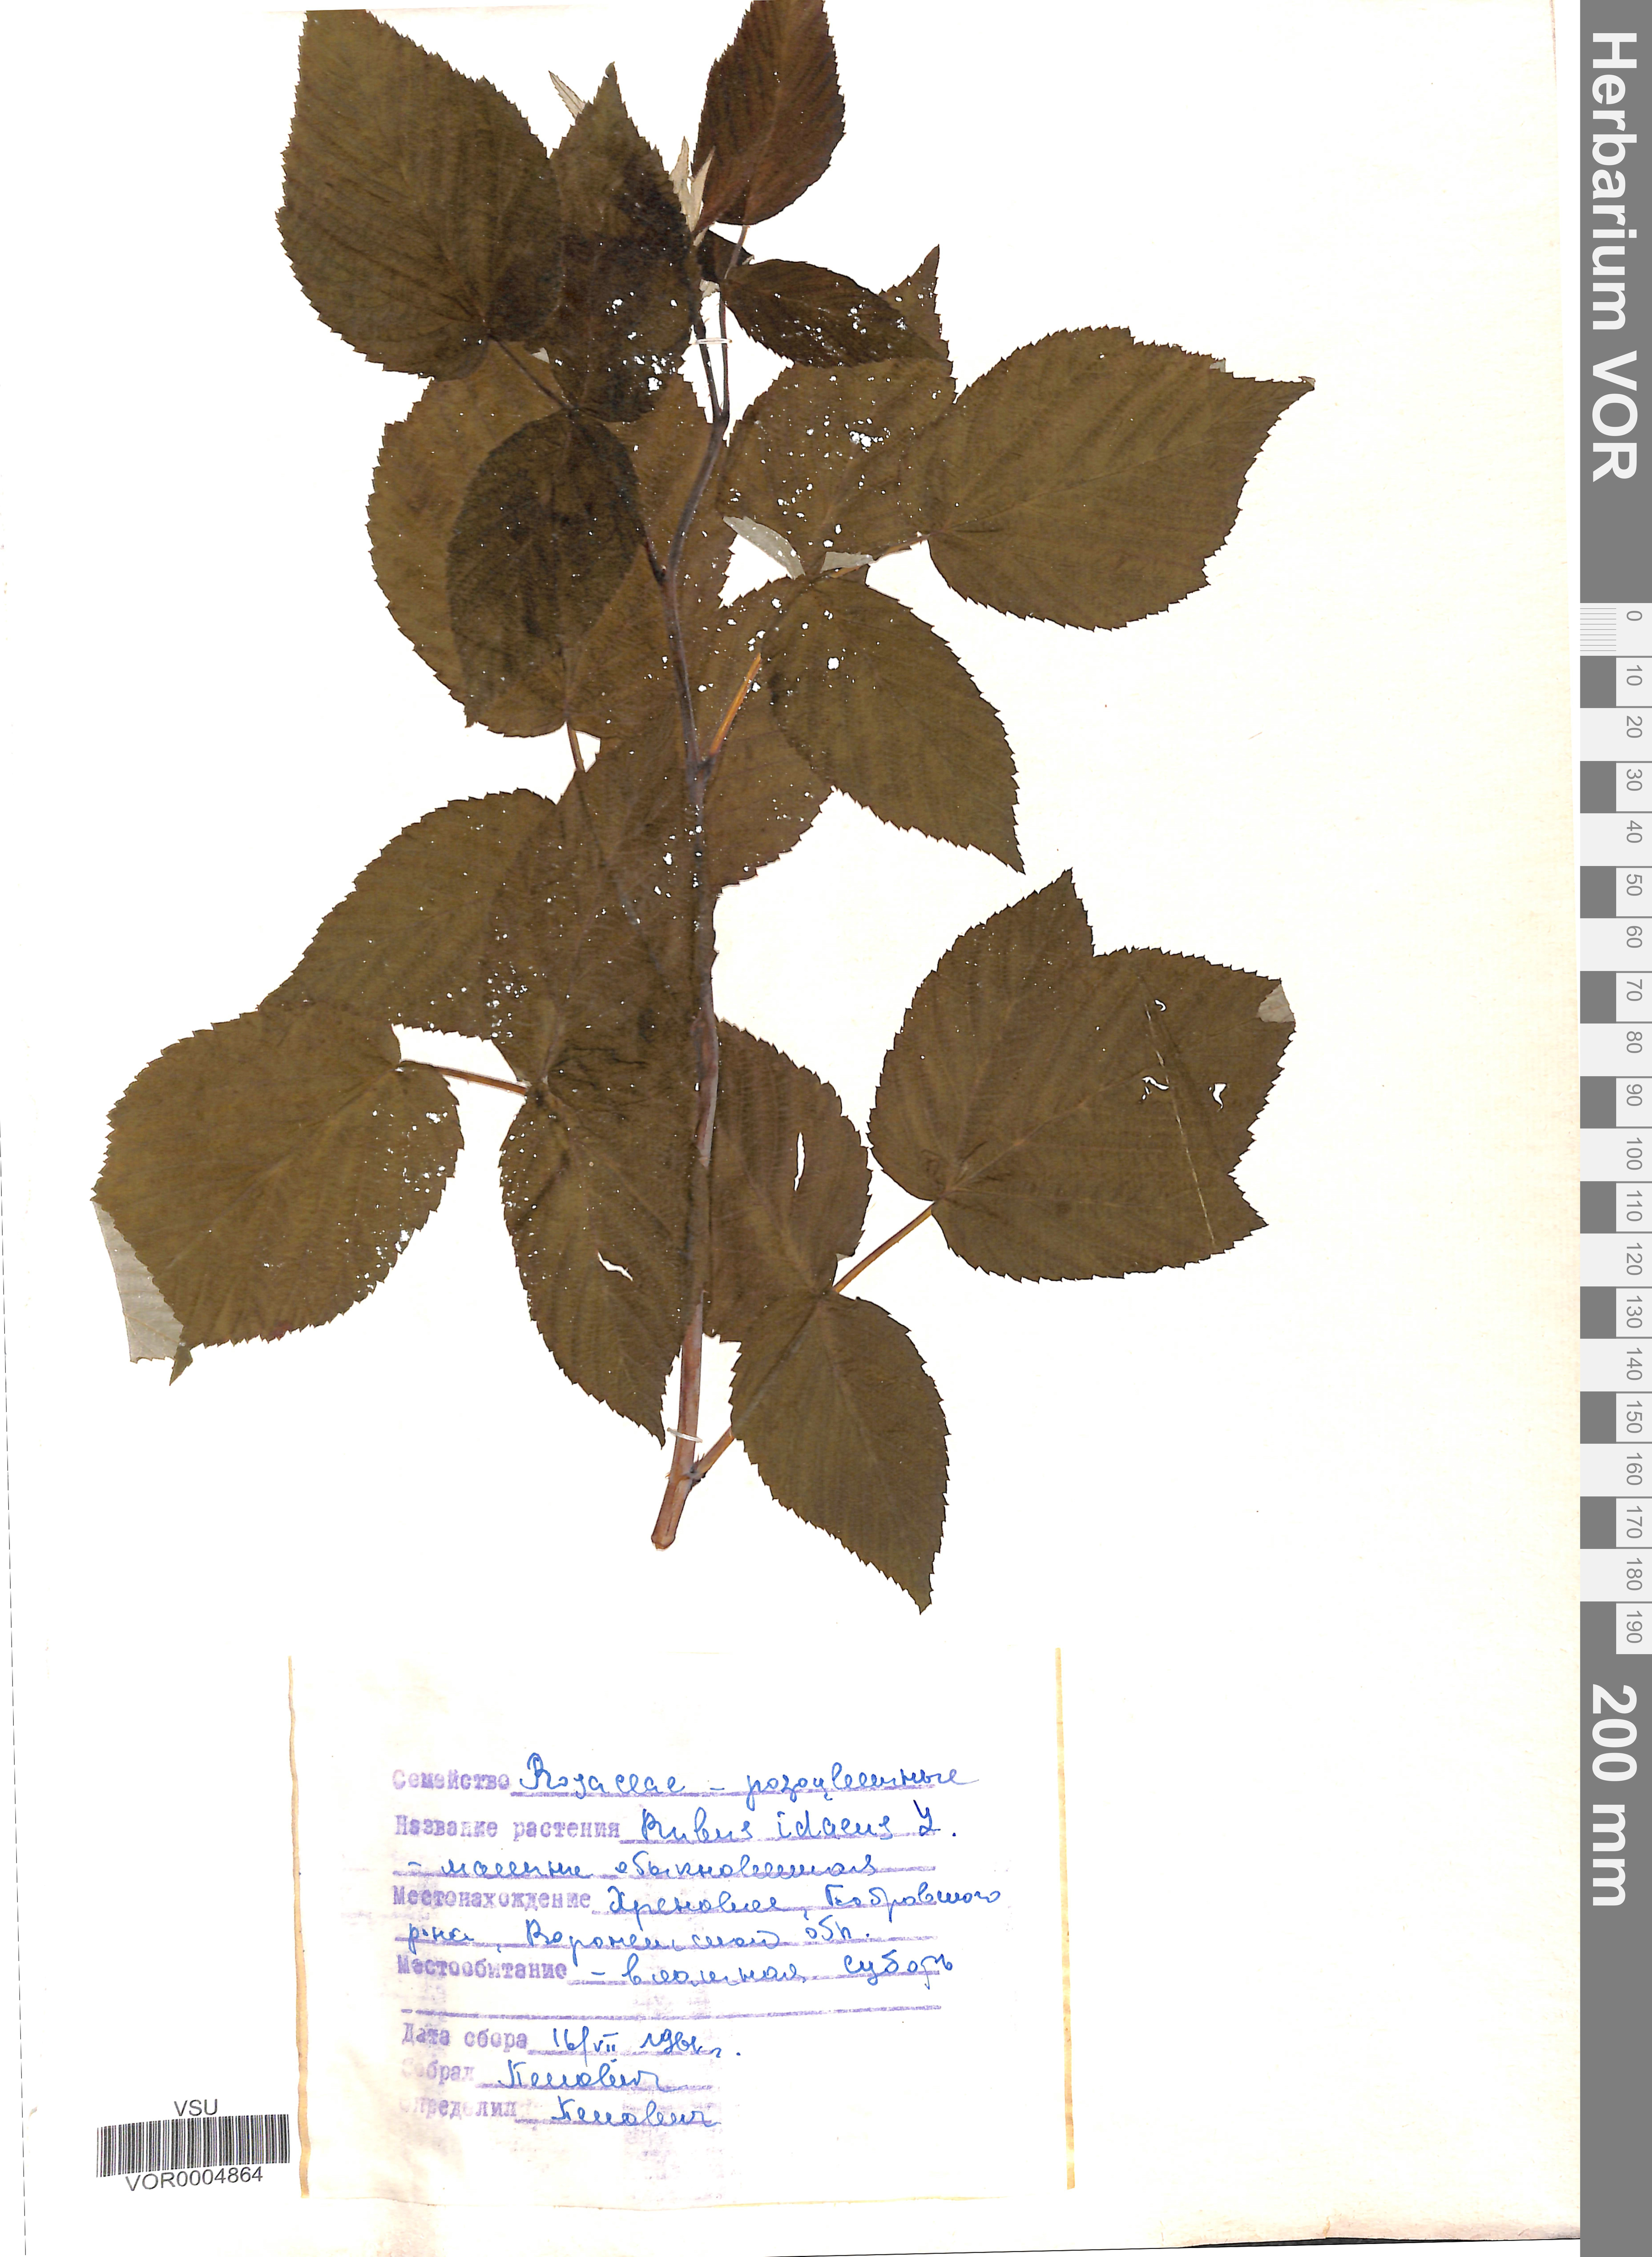 Herbarium VOR
0
10
20
30
40
50
60
70
80
90
100
110
120
130
140
150
160
170
180
190
200 mm
Семейство Rosaceae – розоцветные
Название растения Rubus idaeus L.
– малина обыкновенная
Местонахождение Хреновое, Бобровского
р-на, Воронежской обл.
Местообитание – влажная суборь
Дата сбора 16/VII 1961г.
Собрал
Определил
VSU
VOR0004864